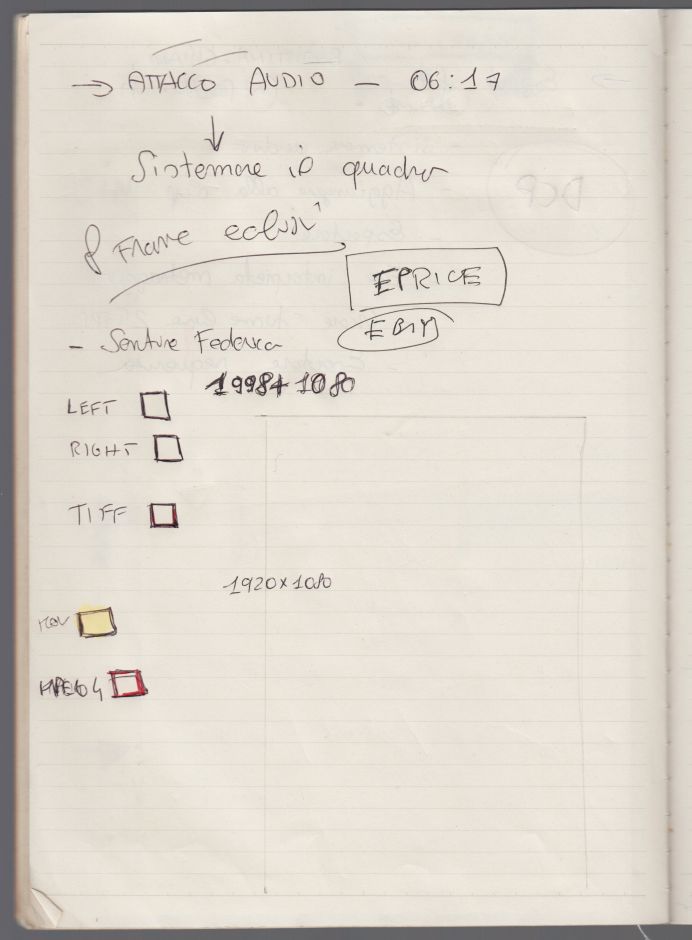 → ATTACCO AUDIO — 06:17
↓
Sistemare il quadro
8 Frame
EPRICE
EBAY
- Sentire Federica
1998+1080
LEFT
RIGHT
TIFF
1920x1080
MOV
MPEG4
DCP